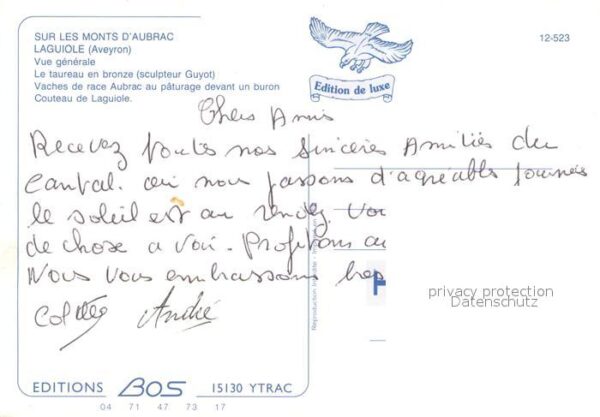 SUR LES MONTS D'AUBRAC
LAGUIOLE (Aveyron)
Vue générale
Le taureau en bronze (sculpteur Guyot)
Vaches de race Aubrac au pâturage devant un buron
Couteau de Laguiole.
12-523
Edition de luxe
Chers Amis
Recevez toutes nos sincères Amitiés du
Cantal. ou nous passons d'agréables journées
le soleil est au rendez vou
de chose a voir. Profitons au
Nous vous embrassons
André
Reproduction Interdite
privacy protection
Datenschutz
EDITIONS BOS 15130 YTRAC
04 71 47 73 17